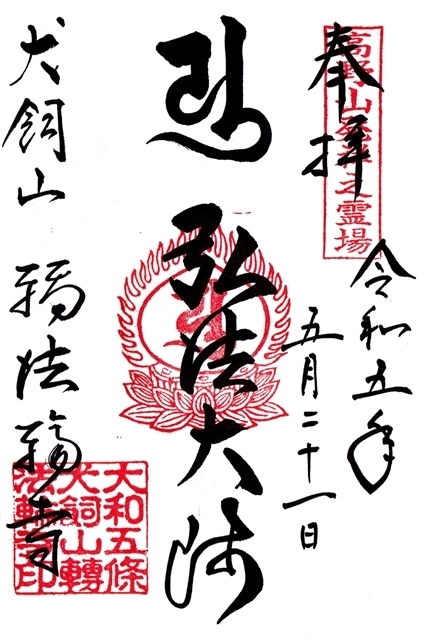 奉拝
高野山発祥之霊場
令和五年
五月二十一日
弘法大師
犬飼山 転法輪寺
大和五條
犬飼山轉
法輪寺印